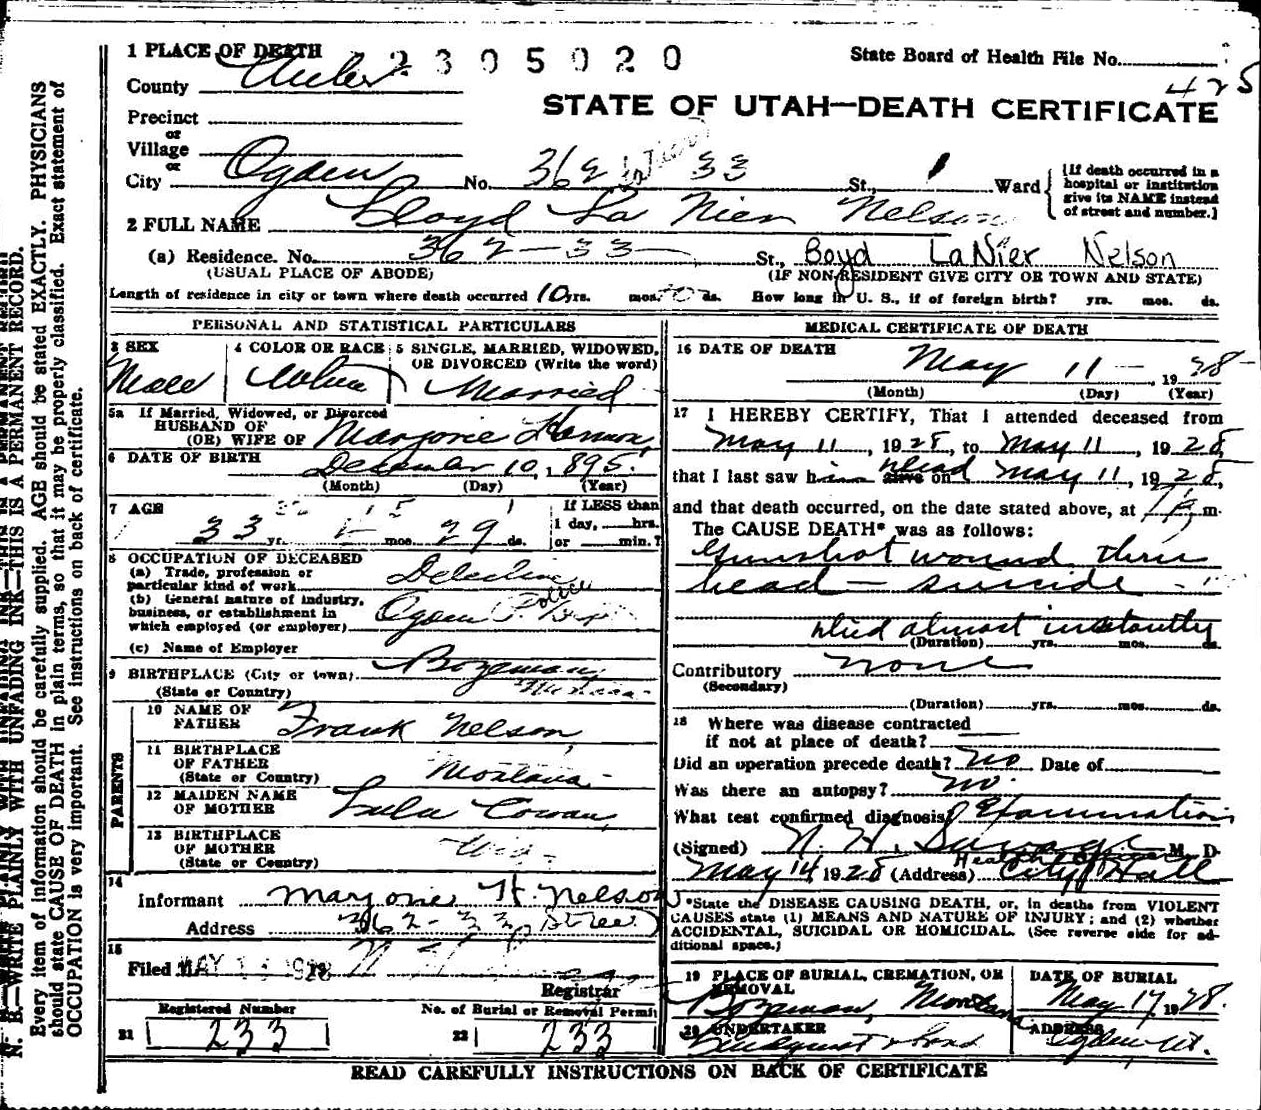 1 PLACE OF DEATH 2305020 State Board of Health File No. 425
County Weber
STATE OF UTAH—DEATH CERTIFICATE
Precinct
or
Village
or
City Ogden No. 362 33 St., 1 Ward
[If death occurred in a
hospital or institution
give its NAME instead
of street and number.]
2 FULL NAME Lloyd La Nier Nelson
(a) Residence. No. 362-33 St., Boyd LaNier Nelson
(USUAL PLACE OF ABODE) (IF NON-RESIDENT GIVE CITY OR TOWN AND STATE)
Length of residence in city or town where death occurred 10 yrs. mos. ds. How long in U. S., if of foreign birth? yrs. mos. ds.
PERSONAL AND STATISTICAL PARTICULARS
3 SEX 4 COLOR OR RACE 5 SINGLE, MARRIED, WIDOWED,
OR DIVORCED (Write the word)
Male White Married
5a If Married, Widowed, or Divorced
HUSBAND OF
(OR) WIFE OF Marjorie Hanson
6 DATE OF BIRTH December 10, 1895.
(Month) (Day) (Year)
7 AGE If LESS than
33 yr. mos. 29 ds. 1 day, hrs.
or min.?
8 OCCUPATION OF DECEASED
(a) Trade, profession or
particular kind of work Detective
(b) General nature of industry,
business, or establishment in
which employed (or employer) Ogden Police
(c) Name of Employer
9 BIRTHPLACE (City or town) Bozeman,
(State or Country) Montana
PARENTS
10 NAME OF
FATHER Frank Nelson,
11 BIRTHPLACE
OF FATHER
(State or Country) Montana
12 MAIDEN NAME
OF MOTHER Lula Cowan,
13 BIRTHPLACE
OF MOTHER
(State or Country)
14
Informant Marjorie H. Nelson
Address 362-33 Street
15
Filed MAY 1928
Registrar
Registered Number No. of Burial or Removal Permit
21 233 22 233
MEDICAL CERTIFICATE OF DEATH
16 DATE OF DEATH May 11 1928
(Month) (Day) (Year)
17 I HEREBY CERTIFY, That I attended deceased from
May 11, 1928, to May 11, 1928,
that I last saw him alive dead on May 11, 1928,
and that death occurred, on the date stated above, at m.
The CAUSE DEATH* was as follows:
Gunshot wound thru
head - suicide
died almost instantly
(Duration) yrs. mos. ds.
Contributory none
(Secondary)
(Duration) yrs. mos. ds.
18 Where was disease contracted
if not at place of death?
Did an operation precede death? no Date of
Was there an autopsy? no.
What test confirmed diagnosis Examination
(Signed) M. D.
Health Officer
May 14 1928 (Address) City Hall
*State the DISEASE CAUSING DEATH, or, in deaths from VIOLENT
CAUSES state (1) MEANS AND NATURE OF INJURY; and (2) whether
ACCIDENTAL, SUICIDAL OR HOMICIDAL. (See reverse side for ad-
ditional space.)
19 PLACE OF BURIAL, CREMATION, OR
REMOVAL
Bozeman, Montana
DATE OF BURIAL
May 17, 1928.
20 UNDERTAKER
Lindquist & Sons
ADDRESS
Ogden, Ut.
READ CAREFULLY INSTRUCTIONS ON BACK OF CERTIFICATE
N. B.—WRITE PLAINLY WITH UNFADING INK—THIS IS A PERMANENT RECORD.
Every item of information should be carefully supplied. AGE should be stated EXACTLY. PHYSICIANS
should state CAUSE OF DEATH in plain terms, so that it may be properly classified. Exact statement of
OCCUPATION is very important. See instructions on back of certificate.